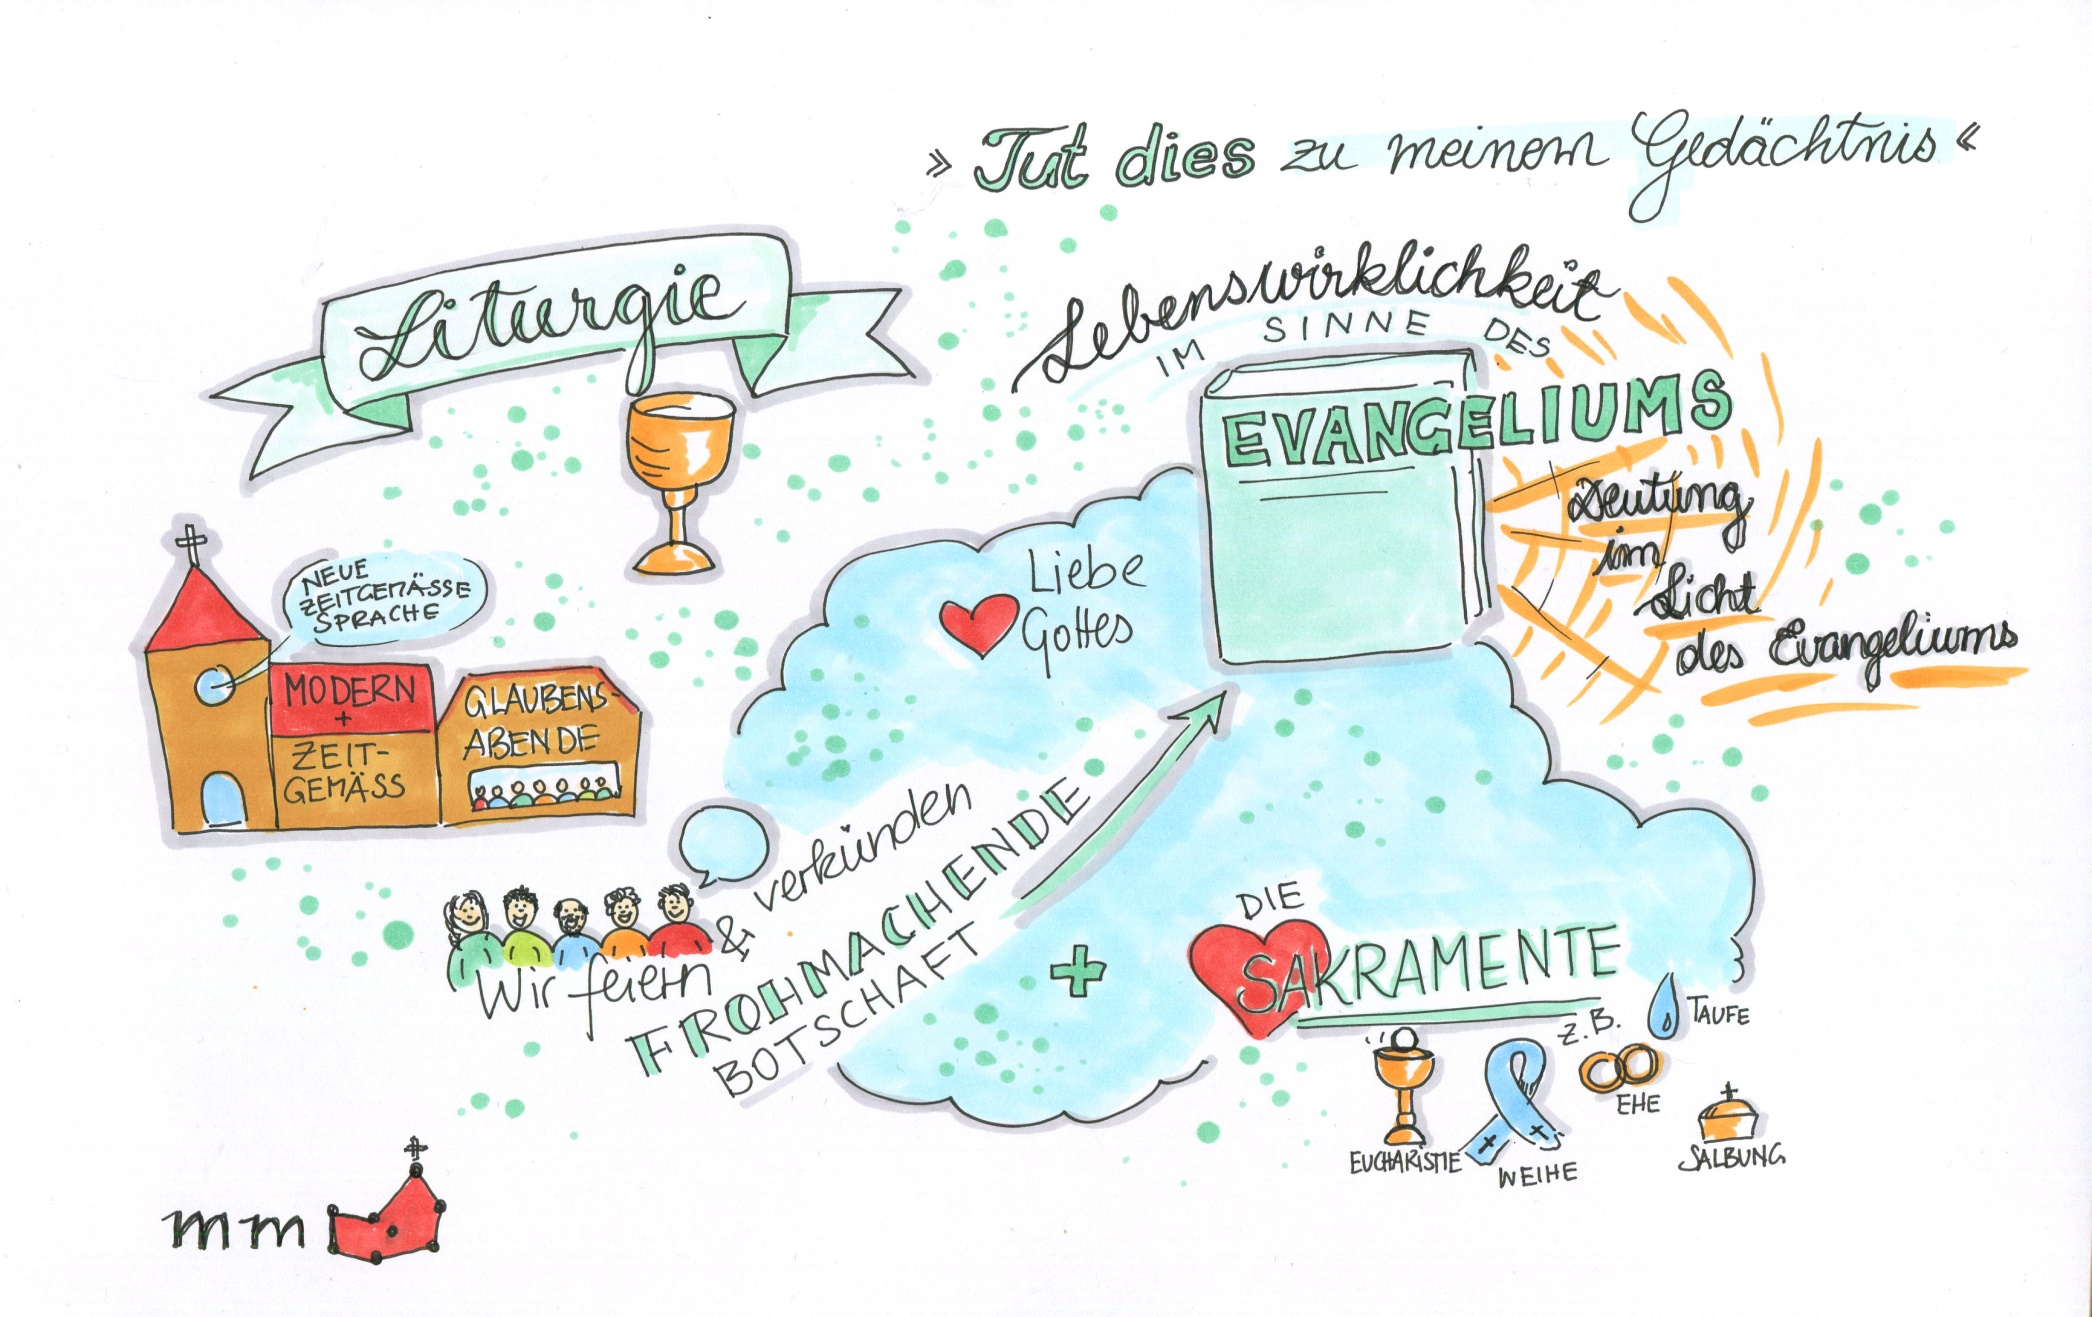 » Tut dies zu meinem Gedächtnis «
Liturgie
Lebenswirklichkeit
IM SINNE DES
EVANGELIUMS
Deutung
im
Licht
des Evangeliums
NEUE
ZEITGEMÄSSE
SPRACHE
MODERN
+
ZEIT-
GEMÄSS
GLAUBENS-
ABENDE
Liebe
Gottes
Wir feiern & verkünden
FROHMACHENDE
BOTSCHAFT
+
DIE
SAKRAMENTE
z.B.
TAUFE
EHE
EUCHARISTIE
WEIHE
SALBUNG
mm